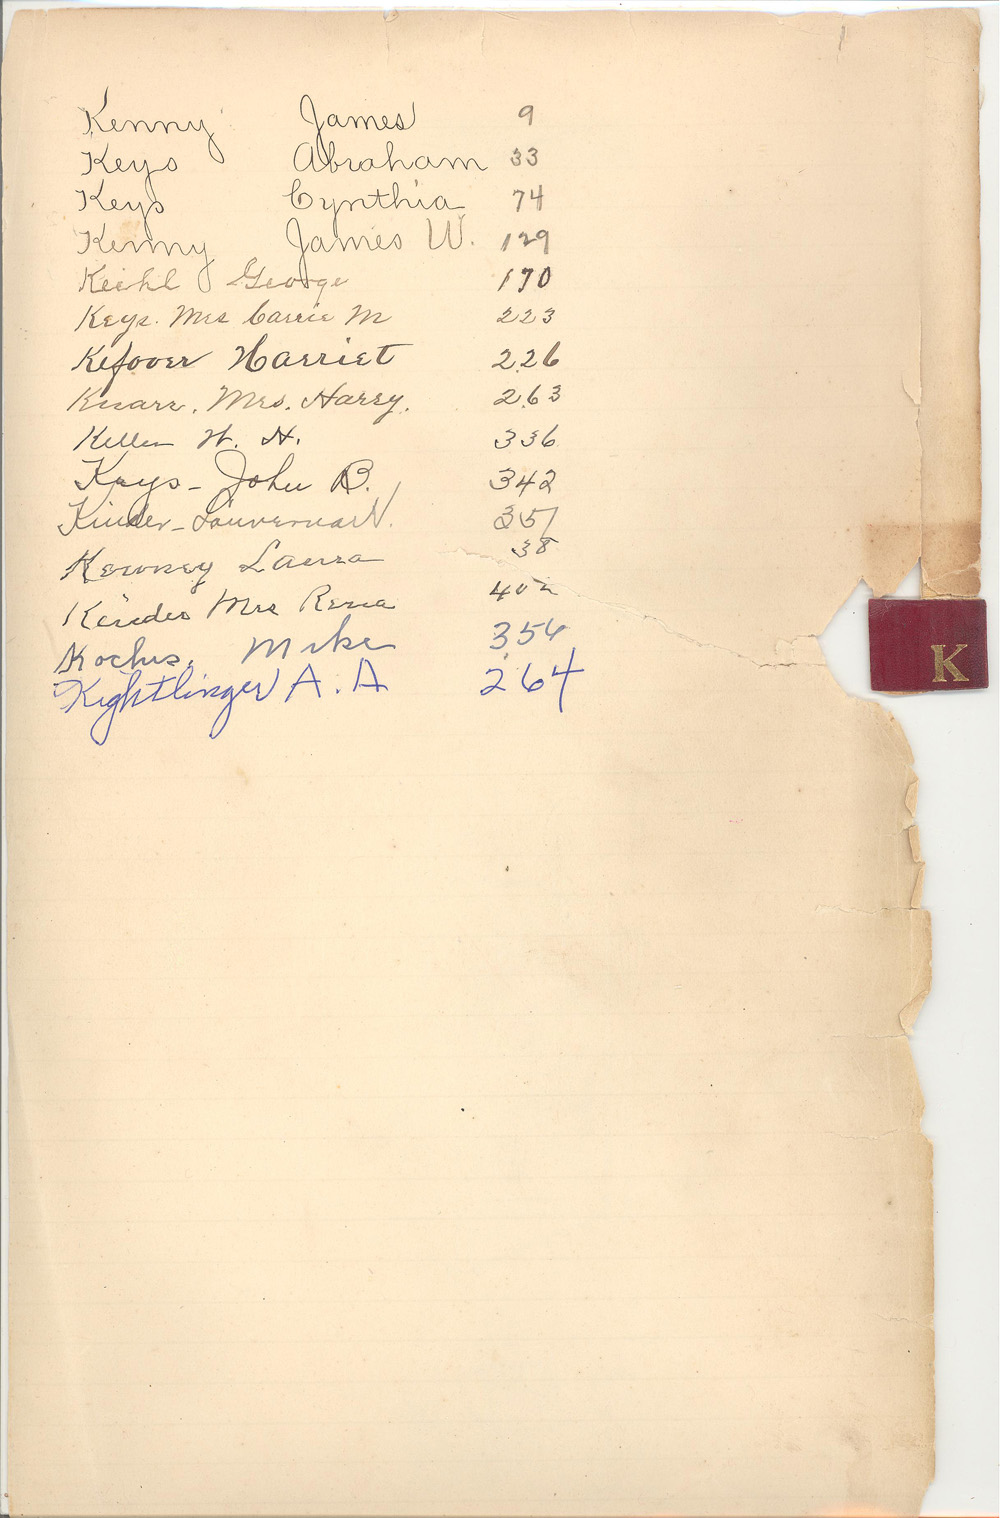 Kenny James 9
Keys Abraham 33
Keys Cynthia 74
Kenny James W. 129
Keihl George 170
Keys. Mrs Carrie M 223
Kefover Harriet 226
Knarr. Mrs. Harry. 263
Keller W. H. 336
Keys - John B. 342
Kinder - Louverna N. 351
Laura 38
Kinder Mrs Rena 402
Kochis, Mike 354
Kightlinger A. A 264
K